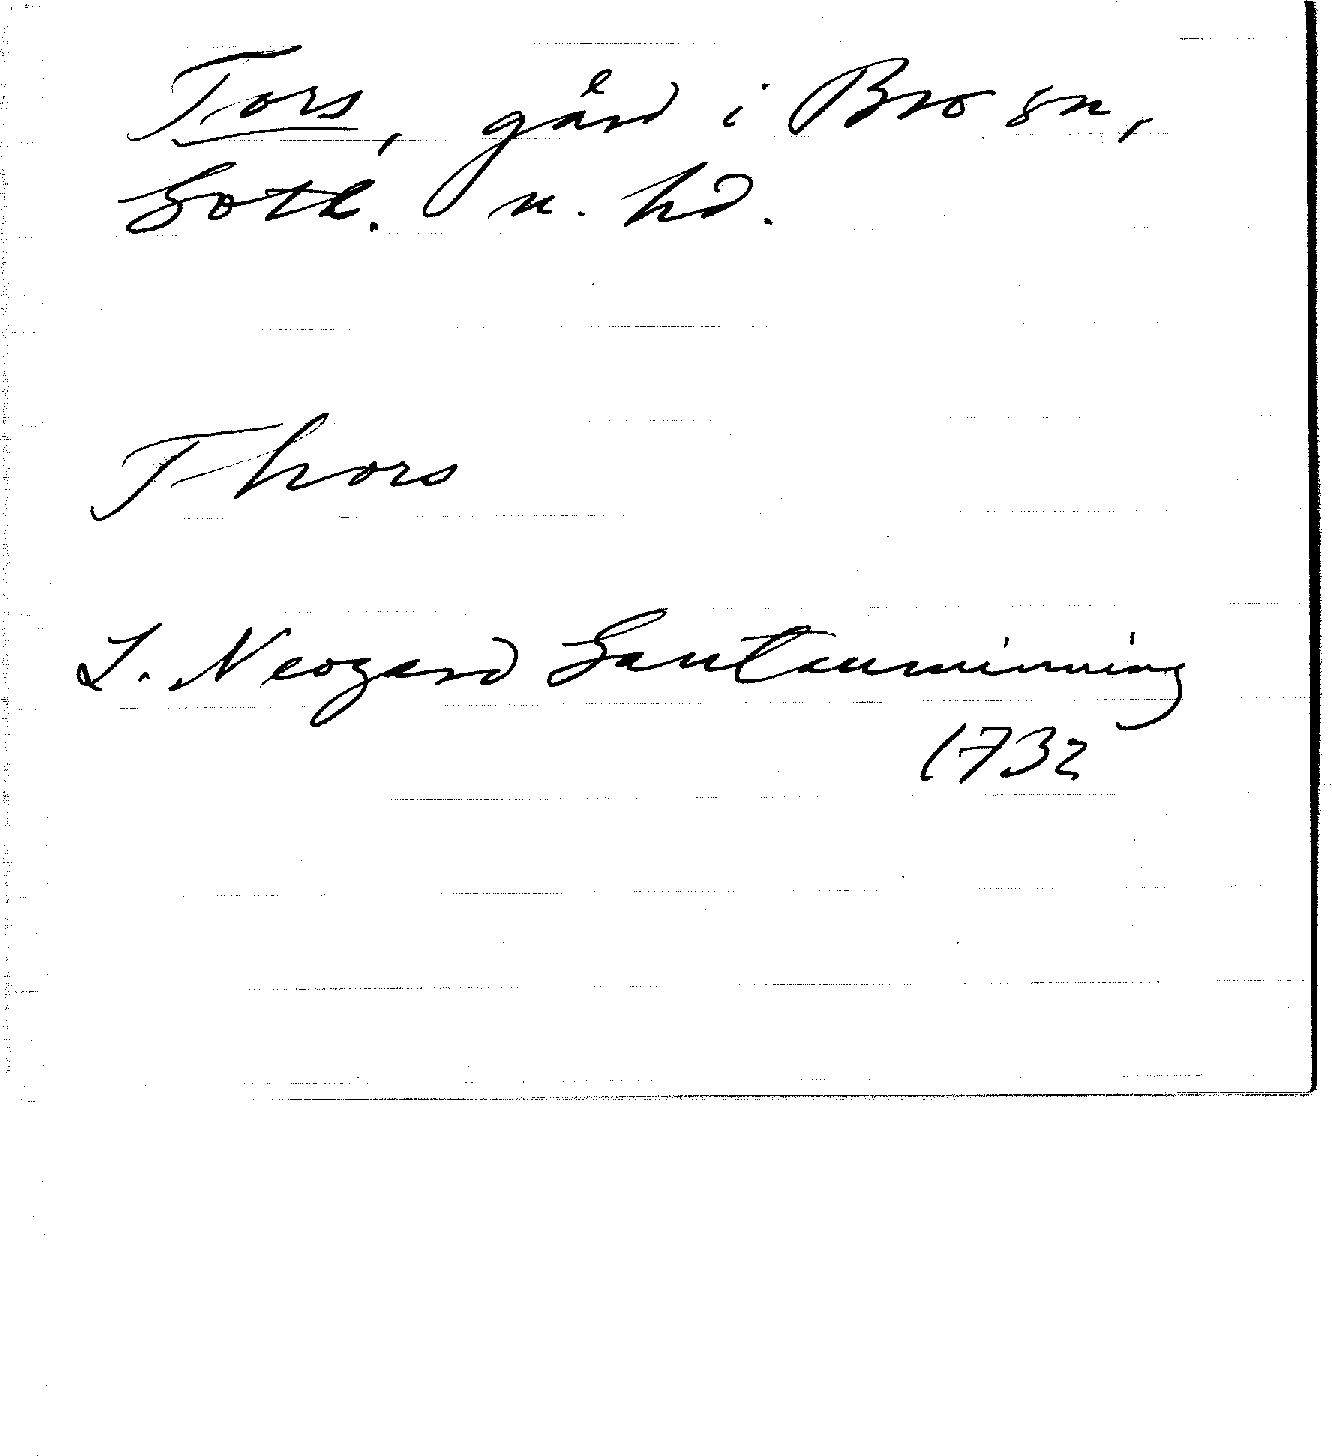 Tors, gård i Bro sn,
Gotl. n. hd.
Thors
L. Neogard Gautauminning
1732